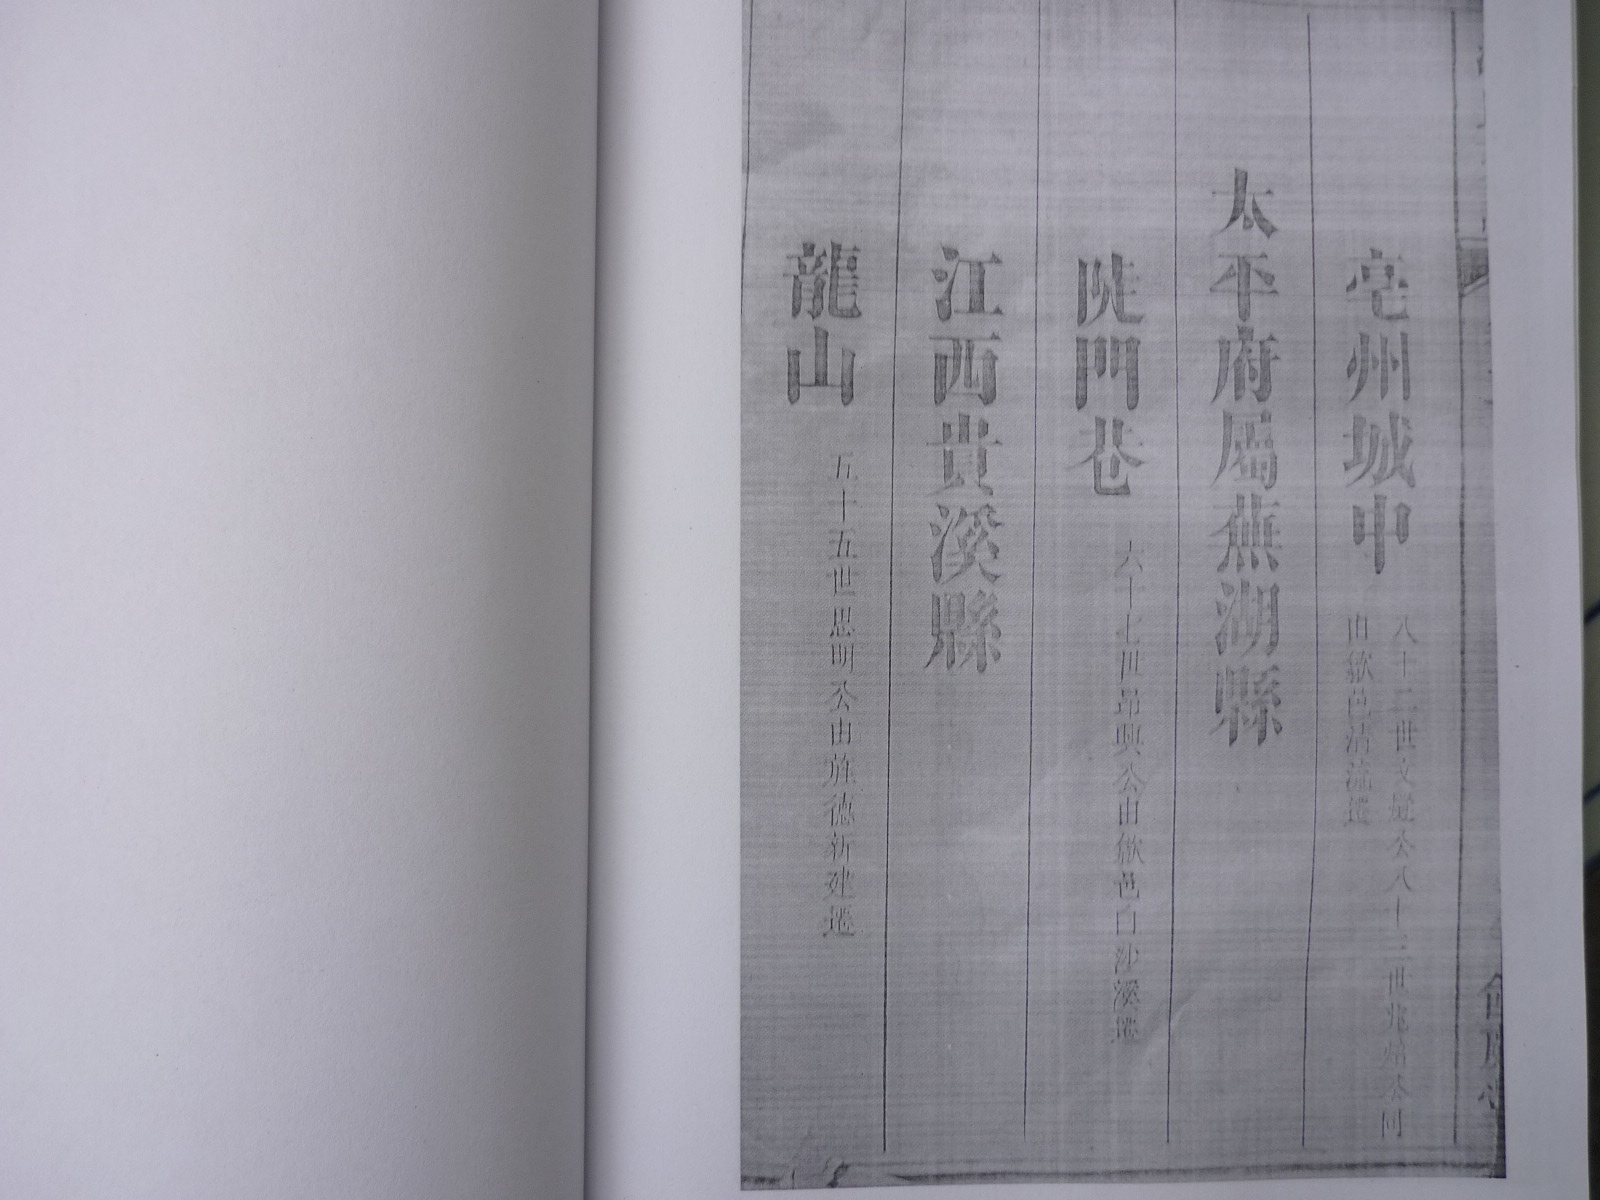 亳州城中
八十二世文 公八十三世兆 公同
由歙邑清流遷
太平府屬蕪湖縣
陡門巷
六十七世昂興公由歙邑白沙溪遷
江西貴溪縣
龍山
五十五世思明公由旌德新建遷